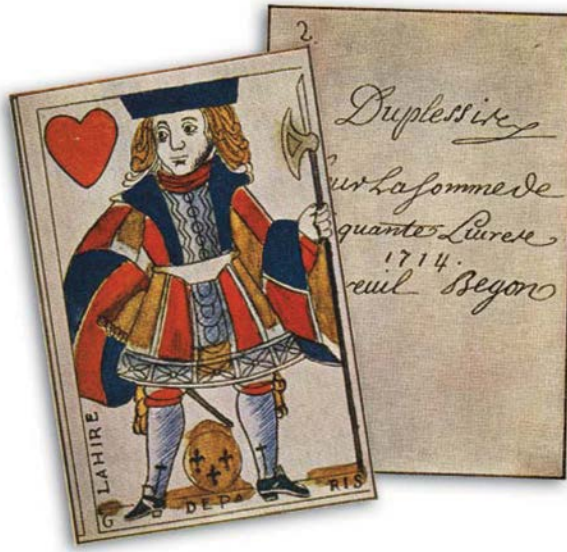 LAHIRE
DE PA RIS
2.
Duplessis
La somme de
quante Livres
1714.
reuil Begon